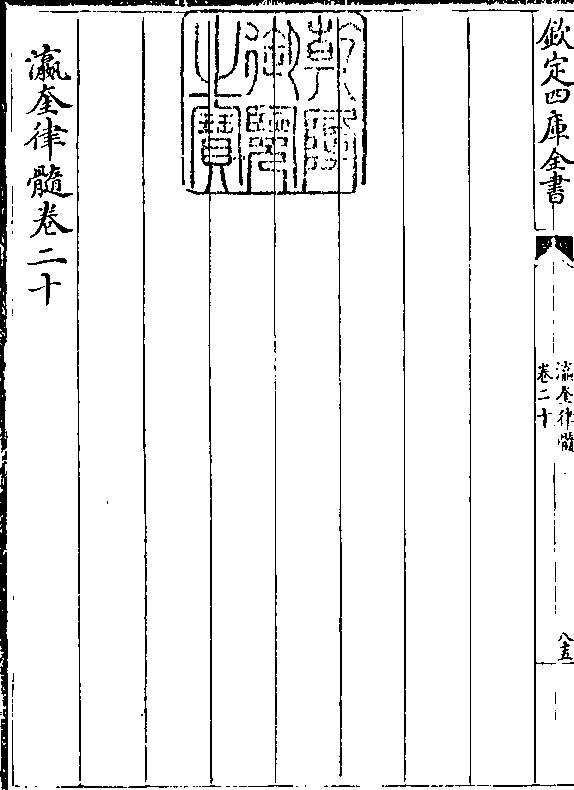 欽定四庫全書
瀛奎律髓
卷二十
八十五
乾隆御覽之寶
瀛奎律髓卷二十